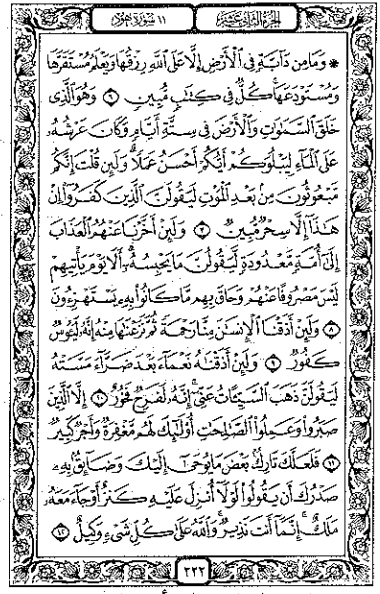 الجزء الثاني عشر ١١ سورة هود
۞ وَمَا مِن دَآبَّةٍ فِى ٱلْأَرْضِ إِلَّا عَلَى ٱللَّهِ رِزْقُهَا وَيَعْلَمُ مُسْتَقَرَّهَا
وَمُسْتَوْدَعَهَا كُلٌّ فِى كِتَٰبٍ مُّبِينٍ ٦ وَهُوَ ٱلَّذِى
خَلَقَ ٱلسَّمَٰوَٰتِ وَٱلْأَرْضَ فِى سِتَّةِ أَيَّامٍ وَكَانَ عَرْشُهُۥ
عَلَى ٱلْمَآءِ لِيَبْلُوَكُمْ أَيُّكُمْ أَحْسَنُ عَمَلًا وَلَئِن قُلْتَ إِنَّكُم
مَّبْعُوثُونَ مِنۢ بَعْدِ ٱلْمَوْتِ لَيَقُولَنَّ ٱلَّذِينَ كَفَرُوٓا۟ إِنْ
هَٰذَآ إِلَّا سِحْرٌ مُّبِينٌ ٧ وَلَئِنْ أَخَّرْنَا عَنْهُمُ ٱلْعَذَابَ
إِلَىٰٓ أُمَّةٍ مَّعْدُودَةٍ لَّيَقُولُنَّ مَا يَحْبِسُهُۥٓ أَلَا يَوْمَ يَأْتِيهِمْ
لَيْسَ مَصْرُوفًا عَنْهُمْ وَحَاقَ بِهِم مَّا كَانُوا۟ بِهِۦ يَسْتَهْزِءُونَ
٨ وَلَئِنْ أَذَقْنَا ٱلْإِنسَٰنَ مِنَّا رَحْمَةً ثُمَّ نَزَعْنَٰهَا مِنْهُ إِنَّهُۥ لَيَـُٔوسٌ
كَفُورٌ ٩ وَلَئِنْ أَذَقْنَٰهُ نَعْمَآءَ بَعْدَ ضَرَّآءَ مَسَّتْهُ
لَيَقُولَنَّ ذَهَبَ ٱلسَّيِّـَٔاتُ عَنِّىٓ إِنَّهُۥ لَفَرِحٌ فَخُورٌ ١٠ إِلَّا ٱلَّذِينَ
صَبَرُوا۟ وَعَمِلُوا۟ ٱلصَّٰلِحَٰتِ أُو۟لَٰٓئِكَ لَهُم مَّغْفِرَةٌ وَأَجْرٌ كَبِيرٌ
١١ فَلَعَلَّكَ تَارِكٌۢ بَعْضَ مَا يُوحَىٰٓ إِلَيْكَ وَضَآئِقٌۢ بِهِۦ
صَدْرُكَ أَن يَقُولُوا۟ لَوْلَآ أُنزِلَ عَلَيْهِ كَنزٌ أَوْ جَآءَ مَعَهُۥ
مَلَكٌ إِنَّمَآ أَنتَ نَذِيرٌ وَٱللَّهُ عَلَىٰ كُلِّ شَىْءٍ وَكِيلٌ ١٢
٢٢٢